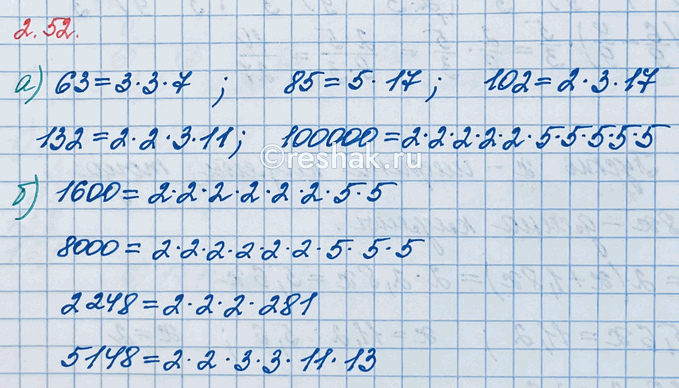 2.52.
а) 63=3·3·7 ; 85=5·17; 102=2·3·17
132=2·2·3·11; 100000=2·2·2·2·2·5·5·5·5·5
©reshak.ru
б) 1600=2·2·2·2·2·2·5·5
8000=2·2·2·2·2·2·5·5·5
2248=2·2·2·281
5148=2·2·3·3·11·13